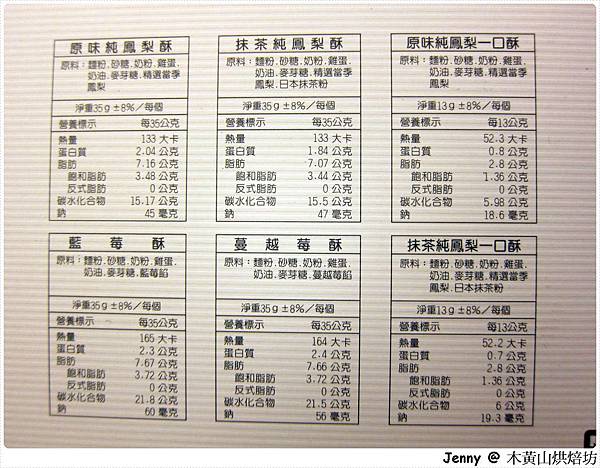 原味純鳳梨酥
原料：麵粉.砂糖.奶粉.雞蛋.
奶油.麥芽糖.精選當季
鳳梨
淨重35g±8%／每個
營養標示 每35公克
熱量 133 大卡
蛋白質 2.04 公克
脂肪 7.16 公克
飽和脂肪 3.48 公克
反式脂肪 0 公克
碳水化合物 15.17 公克
鈉 45 毫克
抹茶純鳳梨酥
原料：麵粉.砂糖.奶粉.雞蛋.
奶油.麥芽糖.精選當季
鳳梨.日本抹茶粉
淨重35g±8%／每個
營養標示 每35公克
熱量 133 大卡
蛋白質 1.84 公克
脂肪 7.07 公克
飽和脂肪 3.44 公克
反式脂肪 0 公克
碳水化合物 15.5 公克
鈉 47 毫克
原味純鳳梨一口酥
原料：麵粉.砂糖.奶粉.雞蛋.
奶油.麥芽糖.精選當季
鳳梨
淨重13g±8%／每個
營養標示 每13公克
熱量 52.3 大卡
蛋白質 0.8 公克
脂肪 2.8 公克
飽和脂肪 1.36 公克
反式脂肪 0 公克
碳水化合物 5.98 公克
鈉 18.6 毫克
藍莓酥
原料：麵粉.砂糖.奶粉.雞蛋.
奶油.麥芽糖.藍莓餡
淨重35g±8%／每個
營養標示 每35公克
熱量 165 大卡
蛋白質 2.3 公克
脂肪 7.67 公克
飽和脂肪 3.72 公克
反式脂肪 0 公克
碳水化合物 21.8 公克
鈉 60 毫克
蔓越莓酥
原料：麵粉.砂糖.奶粉.雞蛋.
奶油.麥芽糖.蔓越莓餡
淨重35g±8%／每個
營養標示 每35公克
熱量 164 大卡
蛋白質 2.4 公克
脂肪 7.66 公克
飽和脂肪 3.72 公克
反式脂肪 0 公克
碳水化合物 21.5 公克
鈉 56 毫克
抹茶純鳳梨一口酥
原料：麵粉.砂糖.奶粉.雞蛋.
奶油.麥芽糖.精選當季
鳳梨.日本抹茶粉
淨重13g±8%／每個
營養標示 每13公克
熱量 52.2 大卡
蛋白質 0.7 公克
脂肪 2.8 公克
飽和脂肪 1.36 公克
反式脂肪 0 公克
碳水化合物 6 公克
鈉 19.3 毫克
Jenny @ 木黃山烘焙坊